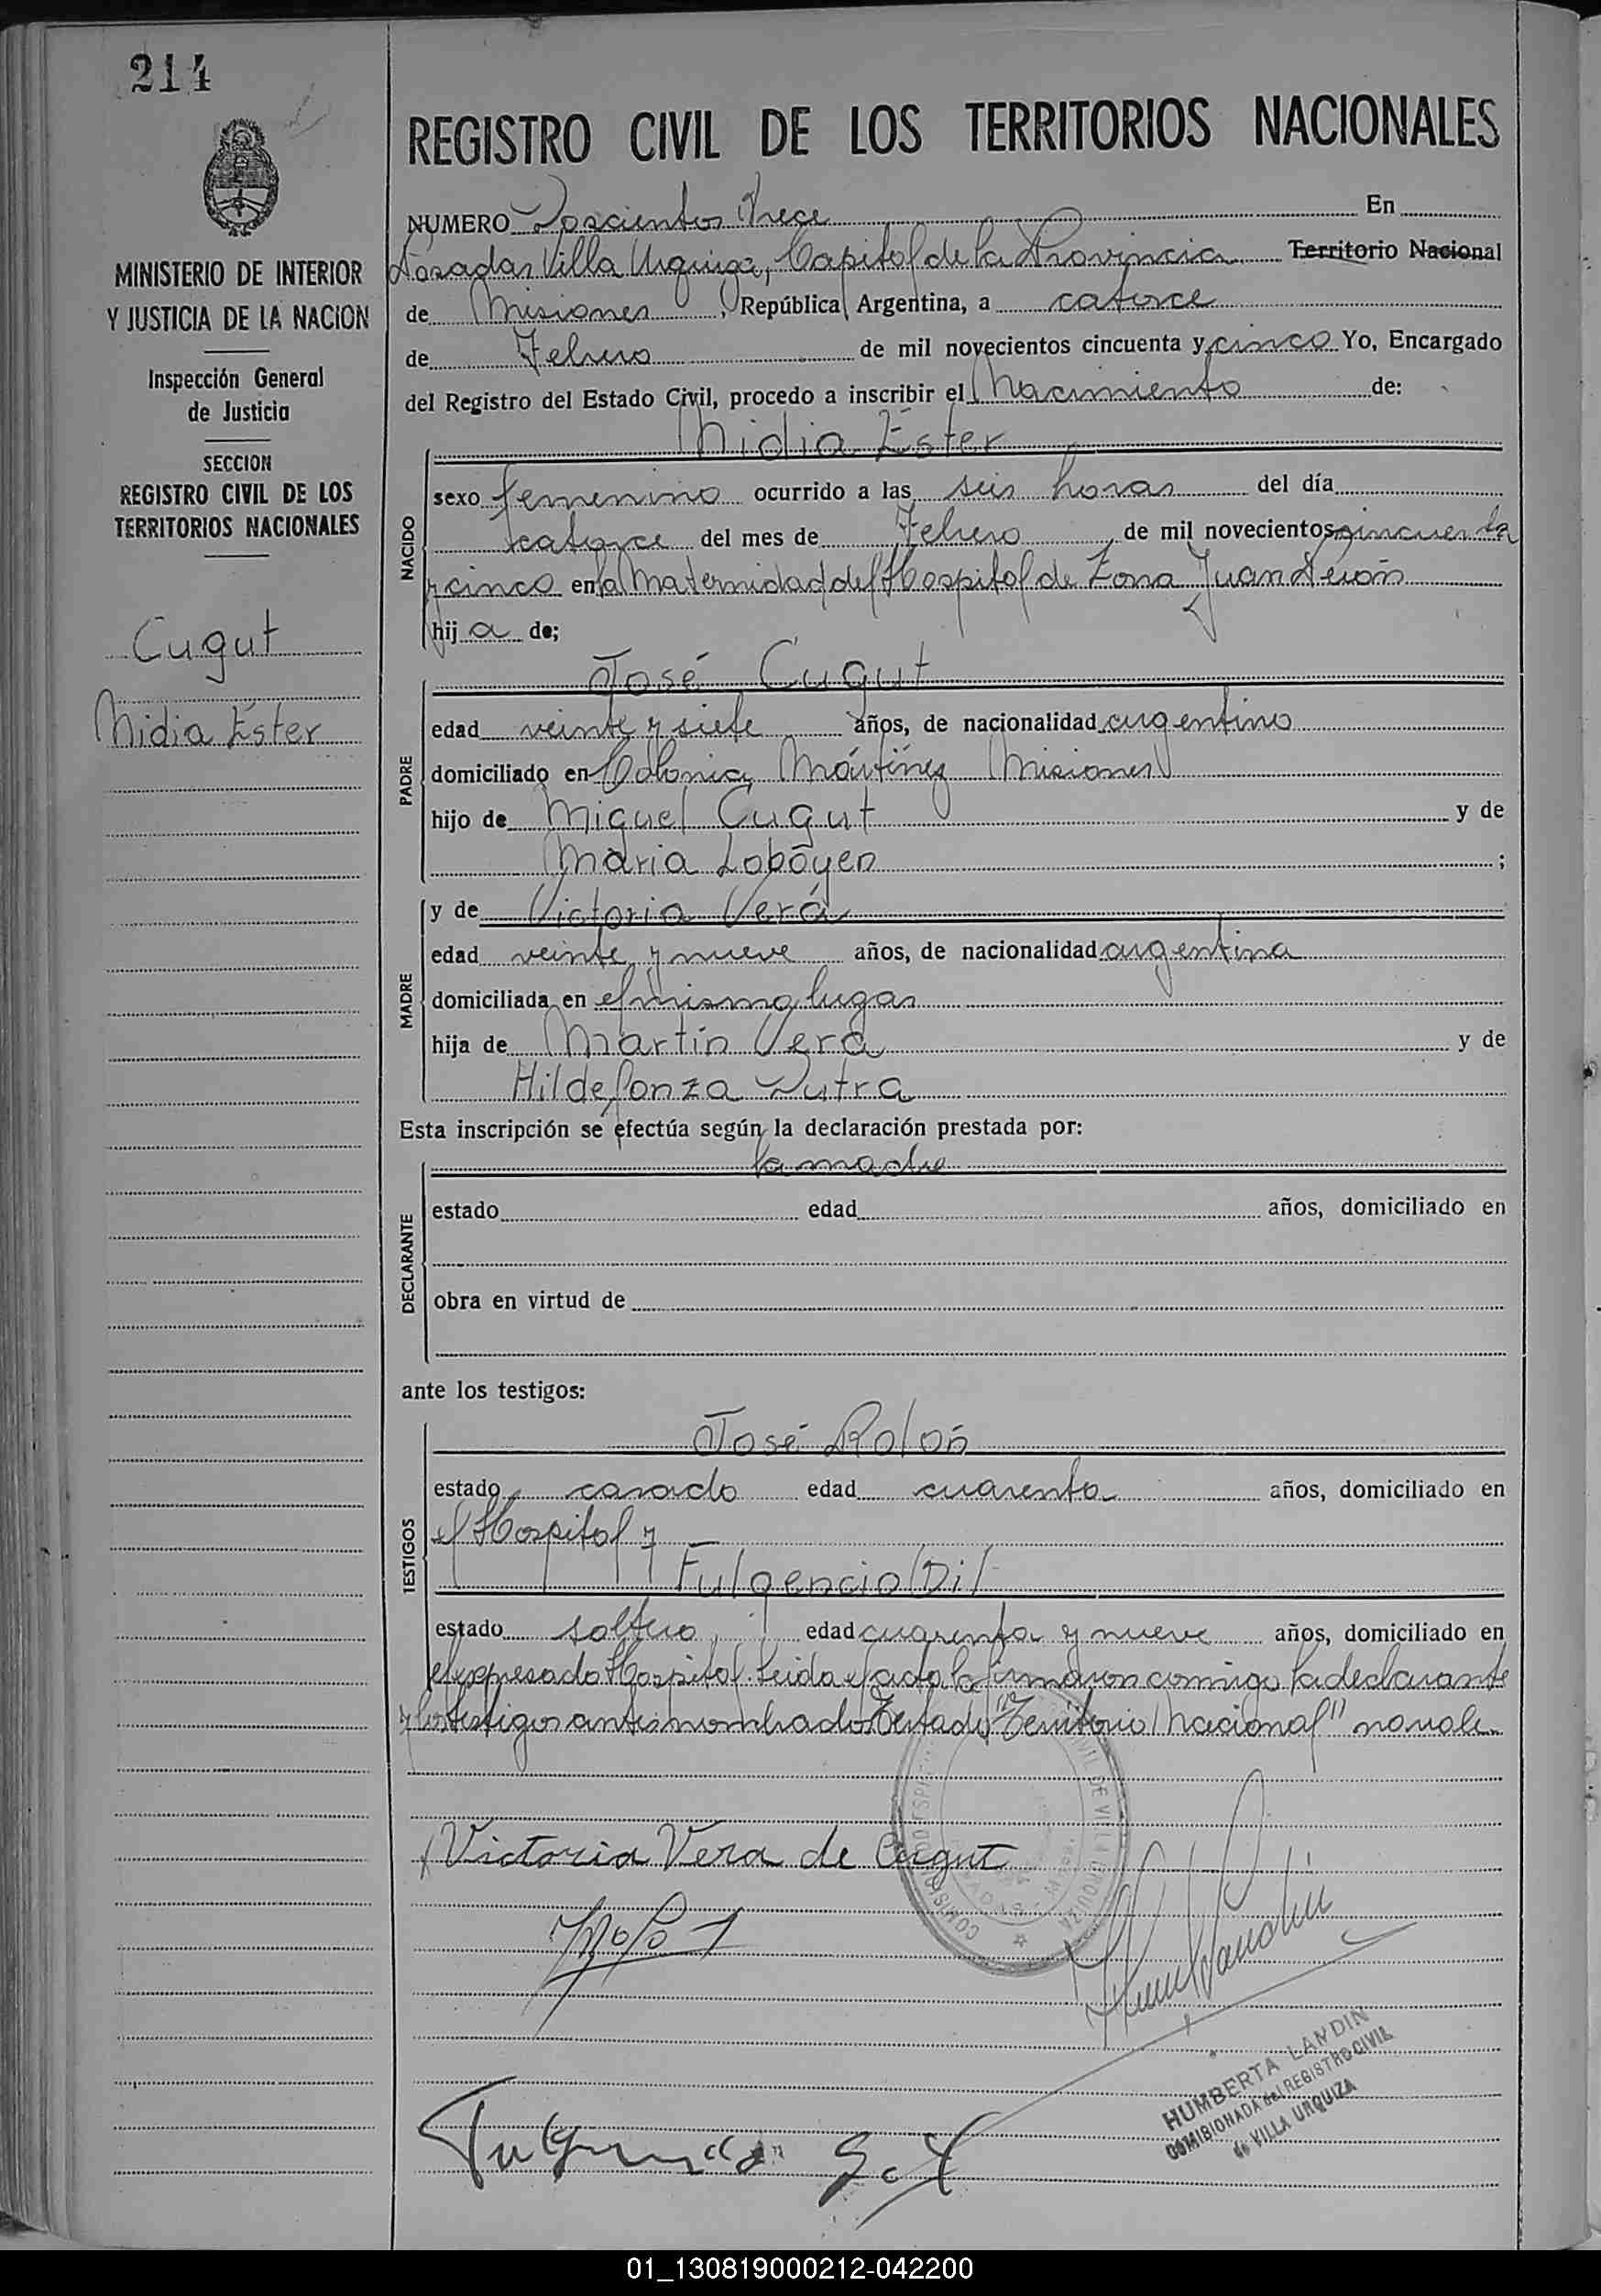 214
REGISTRO CIVIL DE LOS TERRITORIOS NACIONALES
MINISTERIO DE INTERIOR
Y JUSTICIA DE LA NACION
Inspección General
de Justicia
SECCION
REGISTRO CIVIL DE LOS
TERRITORIOS NACIONALES
Cugut
Nidia Ester
NUMERO Doscientos Trece En
Posadas Villa Urquiza, Capital de la Provincia Territorio Nacional
de Misiones, República Argentina, a catorce
de Febrero de mil novecientos cincuenta y cinco Yo, Encargado
del Registro del Estado Civil, procedo a inscribir el Nacimiento de:
Nidia Ester
NACIDO
sexo femenino ocurrido a las seis horas del día
catorce del mes de Febrero de mil novecientos cincuenta
y cinco en la Maternidad del Hospital de Zona Juan Perón
hij a de;
José Cugut
PADRE
edad veinte y siete años, de nacionalidad argentino
domiciliado en Colonia Mártínez Misiones
hijo de Miguel Cugut y de
Maria Loboyen ;
y de Victoria Verá
MADRE
edad veinte y nueve años, de nacionalidad argentina
domiciliada en el mismo lugar
hija de Martín Vera y de
Hildefonza Dutra
Esta inscripción se efectúa según la declaración prestada por:
la madre
DECLARANTE
estado edad años, domiciliado en
obra en virtud de
ante los testigos:
José Rolón
TESTIGOS
estado casado edad cuarenta años, domiciliado en
el Hospital y
Fulgencio Dil
estado soltero, edad cuarenta y nueve años, domiciliado en
el expresado Hospital. Leida el acta la firmaron conmigo la declarante
y los testigos antes nombrados. Testado "Territorio Nacional" no vale.
Victoria Vera de Cugut
HUMBERTA LANDIN
COMISIONADA del REGISTRO CIVIL
de VILLA URQUIZA
01_130819000212-042200